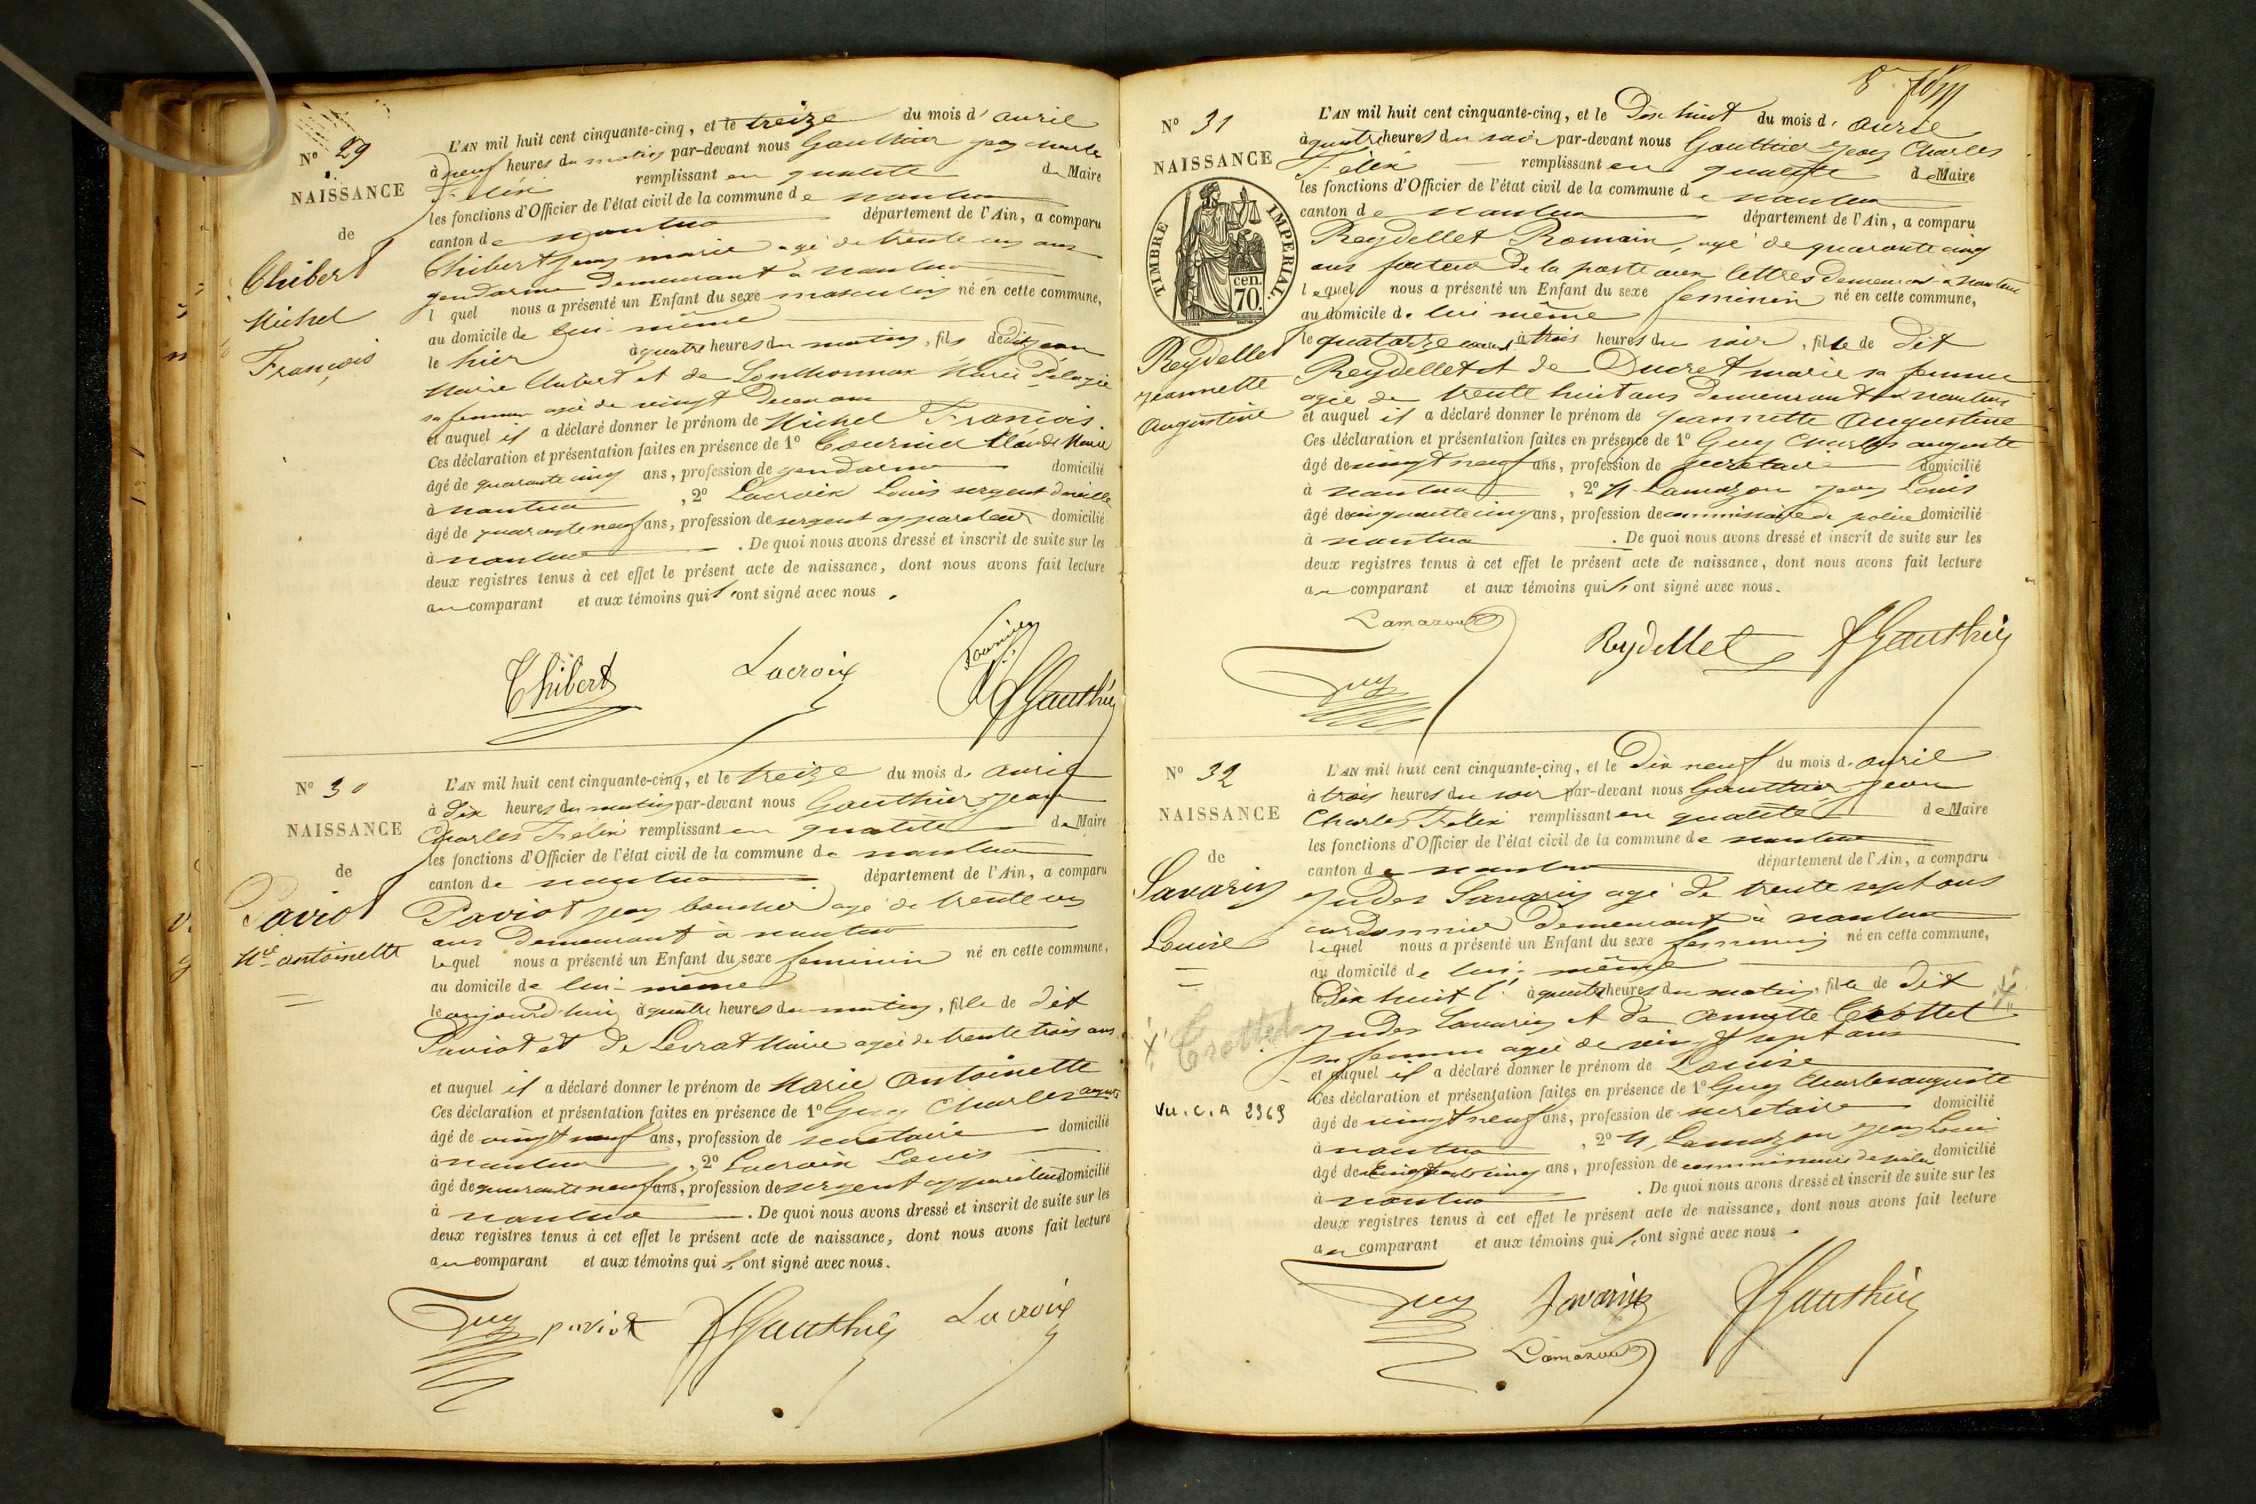 N° 29
NAISSANCE
de
Thibert
Michel
François
L'AN mil huit cent cinquante-cinq, et le treize du mois d'avril
à neuf heures du matin par-devant nous Gauthier Jean Charles
Félix remplissant en qualité de Maire
les fonctions d'Officier de l'état civil de la commune de nantua
canton de nantua département de l'Ain, a comparu
Thibert Jean marie agé de trente cinq ans
gendarme demeurant à nantua
lequel nous a présenté un Enfant du sexe masculin né en cette commune,
au domicile de lui-même
le hier à quatre heures du matin, fils de dit Jean
Marie Thibert et de Marie Pélagie
sa femme agée de vingt deux ans
et auquel il a déclaré donner le prénom de Michel François.
Ces déclaration et présentation faites en présence de 1° Claude Marie
âgé de quarante cinq ans, profession de gendarme domicilié
à nantua, 2° Lacroix Louis sergent de ville
âgé de quarante neuf ans, profession de sergent appariteur domicilié
à nantua. De quoi nous avons dressé et inscrit de suite sur les
deux registres tenus à cet effet le présent acte de naissance, dont nous avons fait lecture
au comparant et aux témoins qui l'ont signé avec nous.
Thibert Lacroix fournier FGauthier
N° 30
NAISSANCE
de
Paviot
Mie antoinette
L'AN mil huit cent cinquante-cinq, et le treize du mois d'avril
à dix heures du matin par-devant nous Gauthier Jean
Charles Félix remplissant en qualité de Maire
les fonctions d'Officier de l'état civil de la commune de nantua
canton de nantua département de l'Ain, a comparu
Paviot Jean boucher agé de trente cinq
ans demeurant à nantua
lequel nous a présenté un Enfant du sexe feminin né en cette commune,
au domicile de lui-même
le aujourd'hui à quatre heures du matin, fille de dit
Paviot et de Levrat Marie agée de trente trois ans
et auquel il a déclaré donner le prénom de Marie Antoinette
Ces déclaration et présentation faites en présence de 1° Guy Charles auguste
âgé de vingt neuf ans, profession de secretaire domicilié
à nantua, 2° Lacroix Louis
âgé de quarante neuf ans, profession de sergent appariteur domicilié
à nantua. De quoi nous avons dressé et inscrit de suite sur les
deux registres tenus à cet effet le présent acte de naissance, dont nous avons fait lecture
au comparant et aux témoins qui l'ont signé avec nous.
Guy paviot FGauthier Lacroix
N° 31
NAISSANCE
TIMBRE IMPERIAL.
cen.
70
Reydellet
Jeannette
Augustine
L'AN mil huit cent cinquante-cinq, et le Dix huit du mois d'avril
à quatre heures du soir par-devant nous Gauthier Jean Charles
Félix remplissant en qualité de Maire
les fonctions d'Officier de l'état civil de la commune de nantua
canton de nantua département de l'Ain, a comparu
Reydellet Romain, agé de quarante cinq
ans facteur de la poste aux lettres demeurant à Nantua
lequel nous a présenté un Enfant du sexe feminin né en cette commune,
au domicile de lui même
le quatorze courant à trois heures du soir, fille de dit
Reydellet et de Ducret marie sa femme
agée de trente huit ans demeurant à nantua
et auquel il a déclaré donner le prénom de Jeannette Augustine
Ces déclaration et présentation faites en présence de 1° Guy Charles auguste
âgé de vingt neuf ans, profession de secretaire domicilié
à nantua, 2° M. Lamazou Jean Louis
âgé de cinquante cinq ans, profession de commissaire de police domicilié
à nantua. De quoi nous avons dressé et inscrit de suite sur les
deux registres tenus à cet effet le présent acte de naissance, dont nous avons fait lecture
au comparant et aux témoins qui l'ont signé avec nous.
Lamazou
Guy Reydellet FGauthier
N° 32
NAISSANCE
de
Savarin
Louise
Crottet
Vu. C. A 2369
L'AN mil huit cent cinquante-cinq, et le Dix neuf du mois d'avril
à trois heures du soir par-devant nous Gauthier Jean
Charles Félix remplissant en qualité de Maire
les fonctions d'Officier de l'état civil de la commune de nantua
canton de nantua département de l'Ain, a comparu
Judes Savarin agé de trente sept ans
cordonnier demeurant à nantua
lequel nous a présenté un Enfant du sexe feminin né en cette commune,
au domicile de lui-même
le Dix huit ct à quatre heures du matin, fille de dit
Judes Savarin et de Annette Crottet
sa femme agée de vingt sept ans
et auquel il a déclaré donner le prénom de Louise
Ces déclaration et présentation faites en présence de 1° Guy Charles auguste
âgé de vingt neuf ans, profession de secretaire domicilié
à nantua, 2° M. Lamazou Jean Louis
âgé de cinquante cinq ans, profession de commissaire de police domicilié
à nantua. De quoi nous avons dressé et inscrit de suite sur les
deux registres tenus à cet effet le présent acte de naissance, dont nous avons fait lecture
au comparant et aux témoins qui l'ont signé avec nous.
Guy Savarin FGauthier
Lamazou